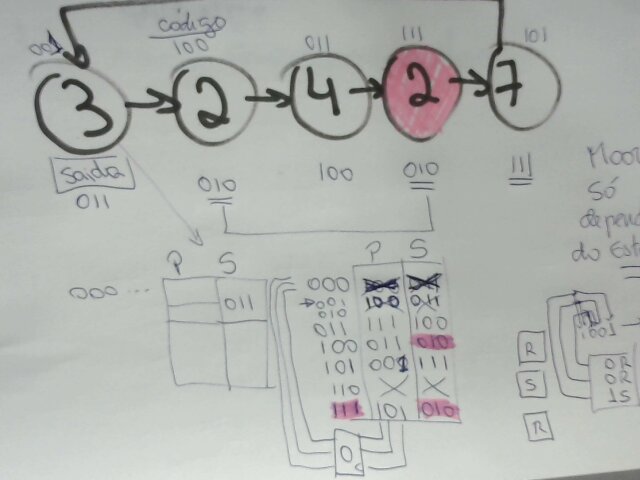 código
001 100 011 111 101
3 2 4 2 7
saída
011 010 100 010 111
Moor
Só
depend
do Est
P S
000 ... 011
P S
000
001 100 011
010
011 111 100
100 011 010
101 001 111
110 X X
111 101 010
0
001
R OR
S OR
R 1S